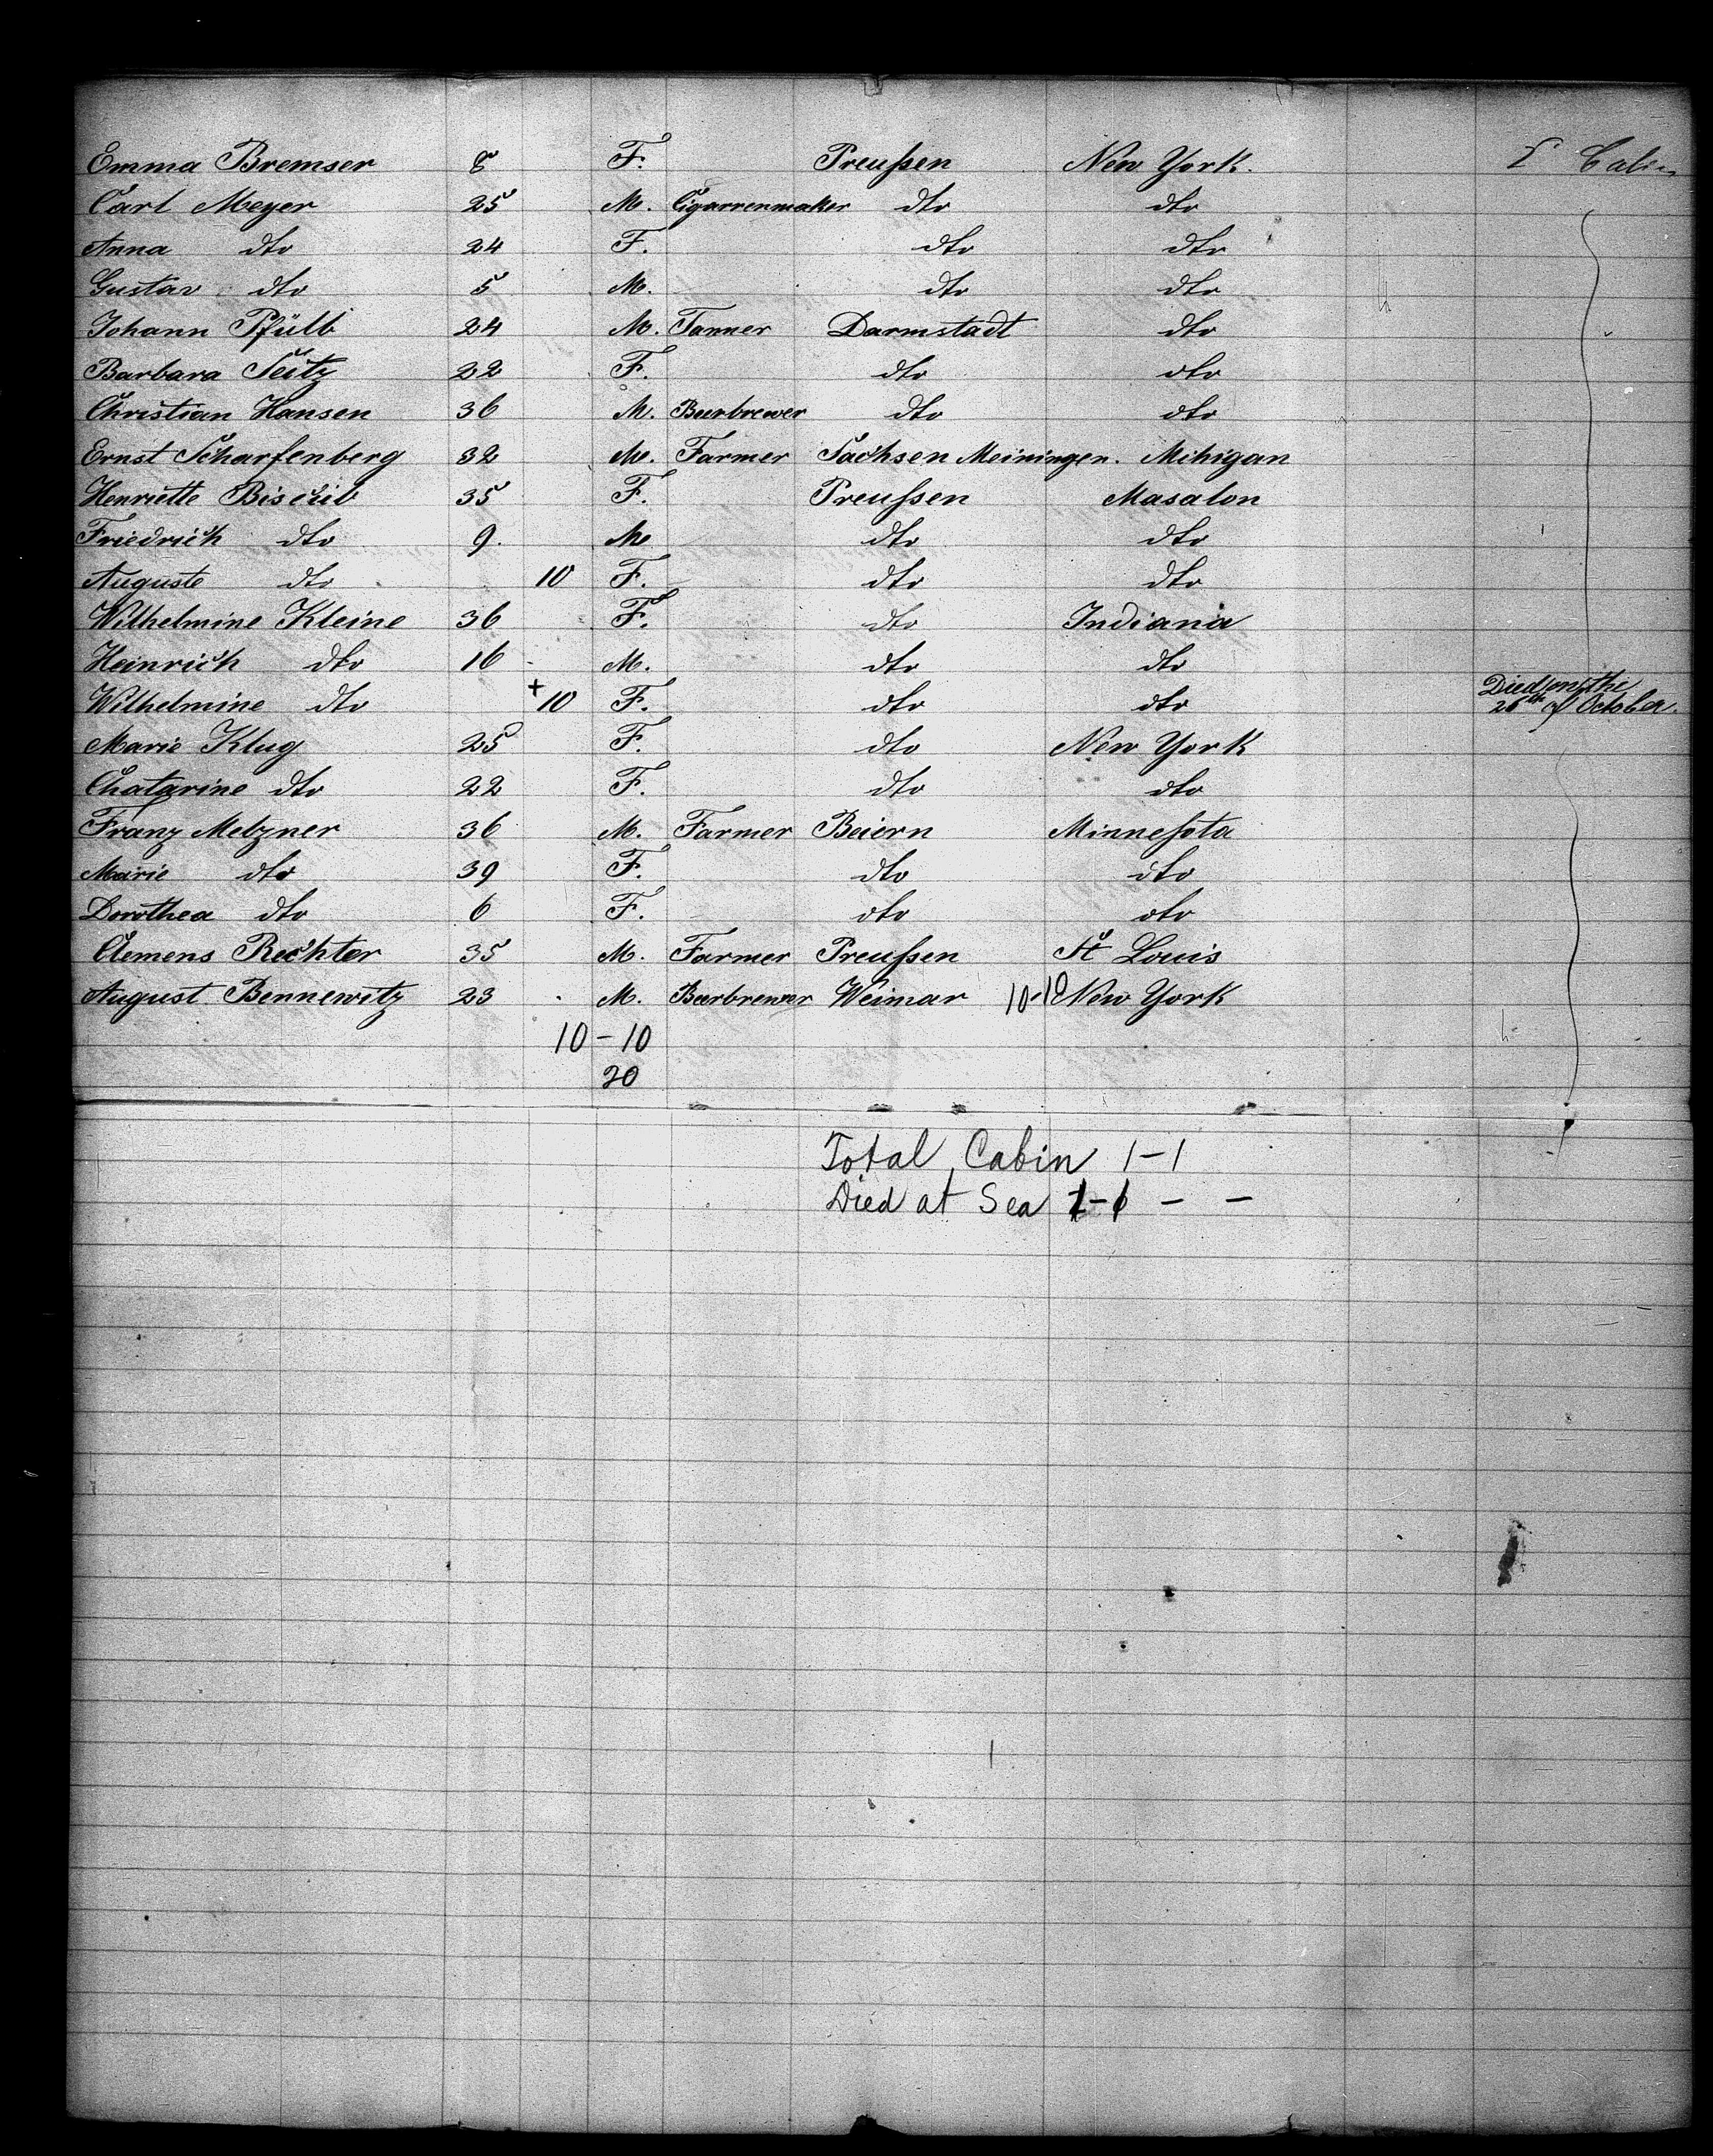 Emma Bremser 8 F. Preußen New York. Cabin
Carl Meyer 25 M. Cigarrenmaker dto dto
Anna dto 24 F. dto dto
Gustav dto 5 M. dto dto
Johann Pfülb 24 M. Tanner Darmstadt dto
Barbara Seitz 22 F. dto dto
Christian Hansen 36 M. Beerbrewer dto dto
Ernst Scharfenberg 32 M. Farmer Sachsen Meiningen. Mihigan
Henriette 35 F. Preußen Masalon
Friedrich dto 9. M. dto dto
Auguste dto 10 F. dto dto
Wilhelmine Kleine 36 F. dto Indiana
Heinrich dto 16 M. dto dto
Wilhelmine dto + 10 F. dto dto Died on the
26th of October.
Marie Klug 25 F. dto New York
Chatarine dto 22 F. dto dto
Franz Metzner 36 M. Farmer Beiern Minneßota
Marie dto 39 F. dto dto
Dorothea dto 6 F. dto dto
Clemens Rechter 35 M. Farmer Preußen St Louis
August Bennewitz 23 M. Beerbrewer Weimar 10-10 New York
10-10
20
Total Cabin 1-1
Died at Sea 1-1 - -